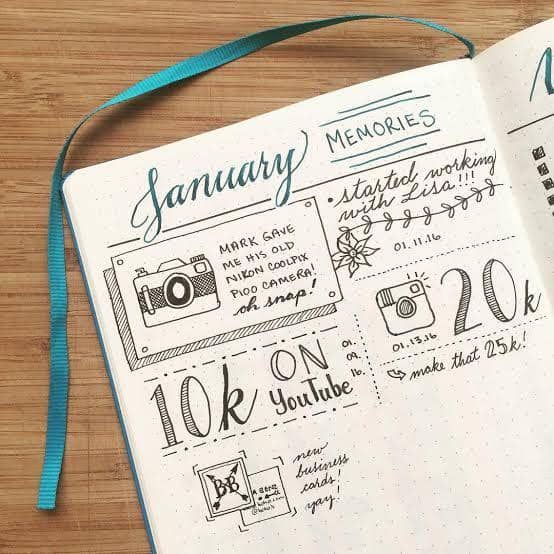 January
MEMORIES
MARK GAVE
ME HIS OLD
NIKON COOLPIX
P100 CAMERA!
oh snap!
• started working
with Lisa!!!
01.11.16
01.13.16
20k
make that 25k!
10k
ON
YouTube
01.
09.
16.
BB
new
business
cards!
yay!